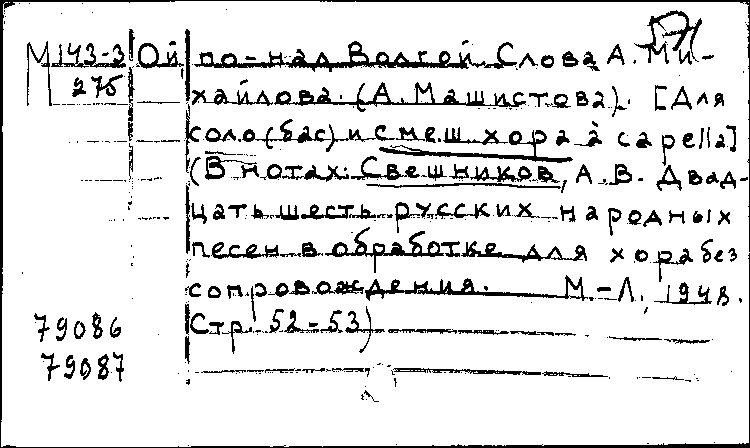 М 143-3 Ой по-над Волгой. Слова А. Ми-
275 хайлова. (А. Машистова). [Для
соло (бас) и смеш. хора à capella]
(В нотах: Свешников, А. В. Двад-
цать шесть русских народных
песен в обработке для хора без
сопровождения. М.-Л., 1948.
79086 Стр. 52-53)
79087